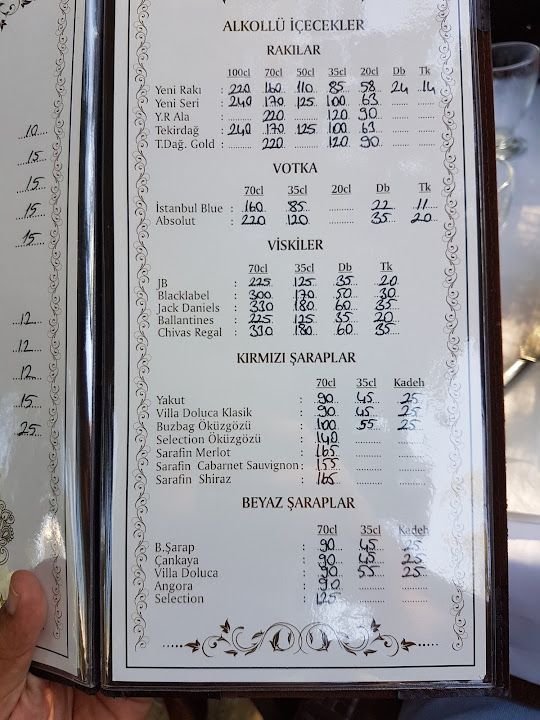 10
15
15
15
15
12
12
12
15
25
ALKOLLÜ İÇECEKLER
RAKILAR
100cl 70cl 50cl 35cl 20cl Db Tk
Yeni Rakı : 220 160 110 85 58 24 14
Yeni Seri : 240 170 125 100 63
Y.R Ala : 220 120 90
Tekirdağ : 240 170 125 100 63
T.Dağ. Gold : 220 120 90
VOTKA
70cl 35cl 20cl Db Tk
İstanbul Blue : 160 85 22 11
Absolut : 220 120 35 20
VİSKİLER
70cl 35cl Db Tk
JB : 225 125 35 20
Blacklabel : 300 170 50 30
Jack Daniels : 330 180 60 35
Ballantines : 225 125 35 20
Chivas Regal : 330 180 60 35
KIRMIZI ŞARAPLAR
70cl 35cl Kadeh
Yakut : 90 45 25
Villa Doluca Klasik : 90 45 25
Buzbag Öküzgözü : 100 55 25
Selection Öküzgözü : 140
Sarafin Merlot : 165
Sarafin Cabarnet Sauvignon : 155
Sarafin Shiraz : 165
BEYAZ ŞARAPLAR
70cl 35cl Kadeh
B.Şarap : 90 45 25
Çankaya : 90 45 25
Villa Doluca : 90 55 25
Angora : 90
Selection : 125